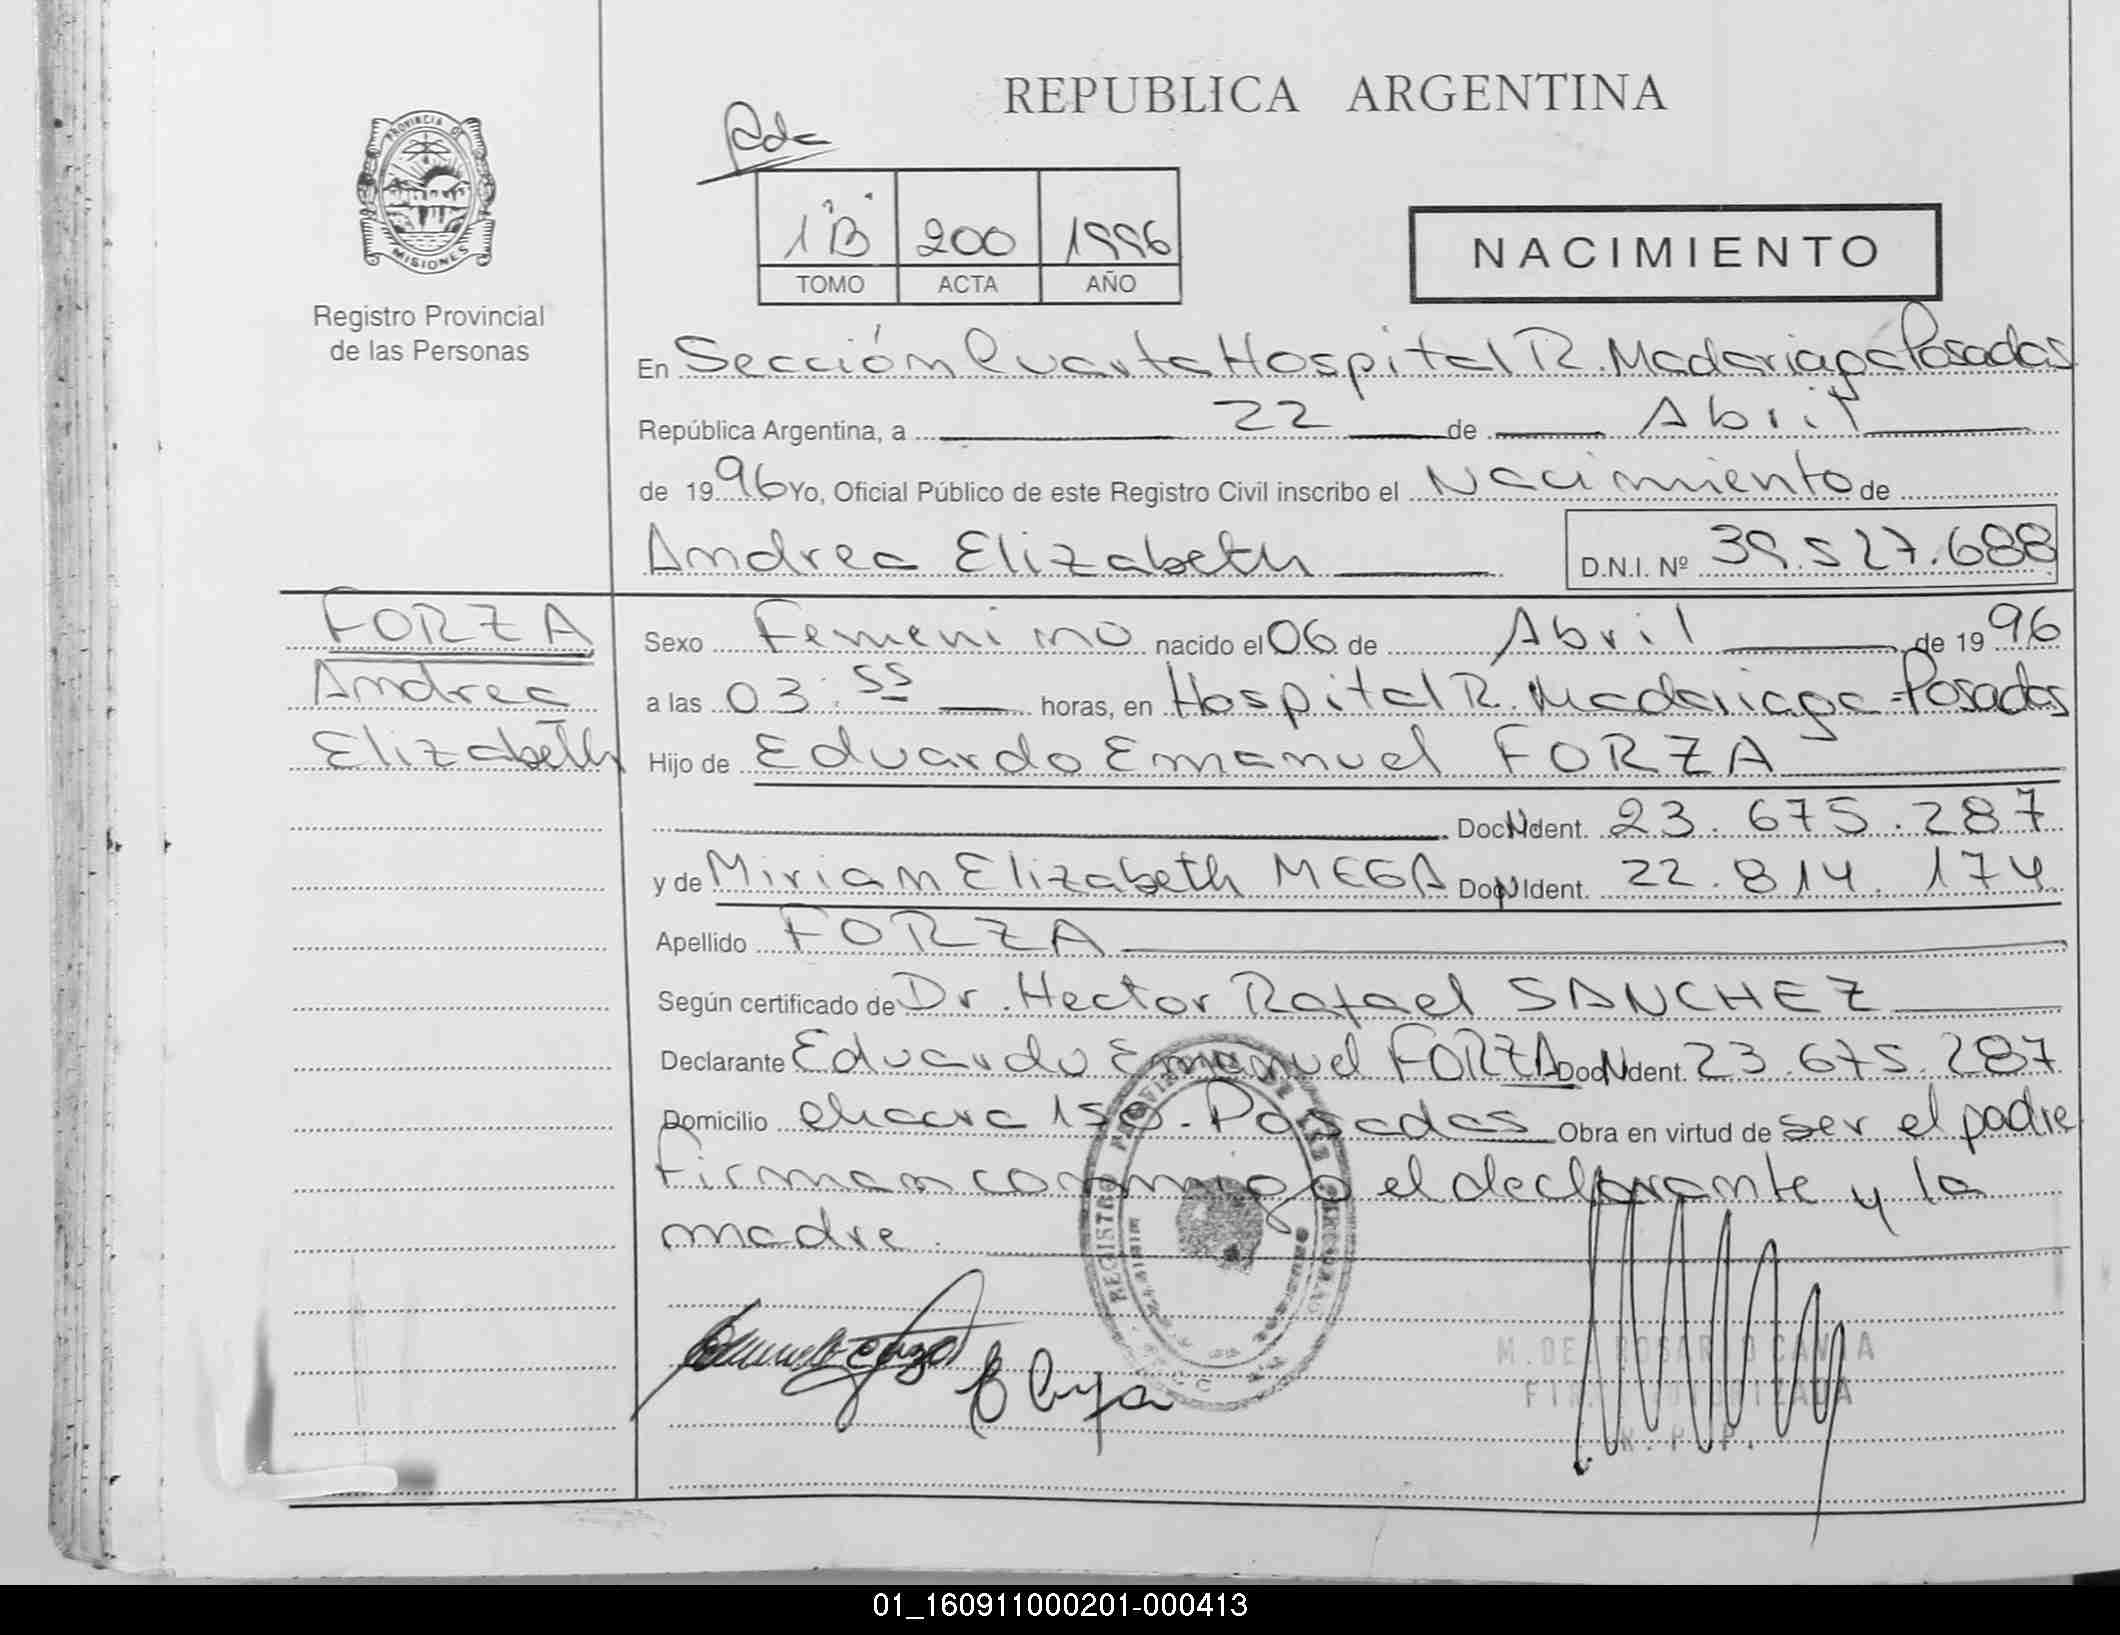 REPUBLICA ARGENTINA
PROVINCIA D
MISIONES
Registro Provincial
de las Personas
1 "B" 200 1996
TOMO ACTA AÑO
NACIMIENTO
En Sección Cuarta Hospital R. Madariaga Posadas
República Argentina, a 22 de Abril
de 1996 Yo, Oficial Público de este Registro Civil inscribo el Nacimiento de
Andrea Elizabeth D.N.I. Nº 39.527.688
FORZA
Andrea
Elizabeth
Sexo Femenino nacido el 06 de Abril de 1996
a las 03:55 horas, en Hospital R. Madariaga - Posadas
Hijo de Eduardo Emanuel FORZA
Doc N Ident. 23.675.287
y de Mirian Elizabeth MEGA Doc N Ident. 22.814.174
Apellido FORZA
Según certificado de Dr. Hector Rafael SANCHEZ
Declarante Eduardo Emanuel FORZA Doc N Ident. 23.675.287
Domicilio chacra 150 - Posadas Obra en virtud de ser el padre
Firman conmigo el declarante y la
madre.
REGISTRO PROVINCIAL DE LAS PERSONAS
M. DEL ROSARIO
R. P. P.
01_160911000201-000413